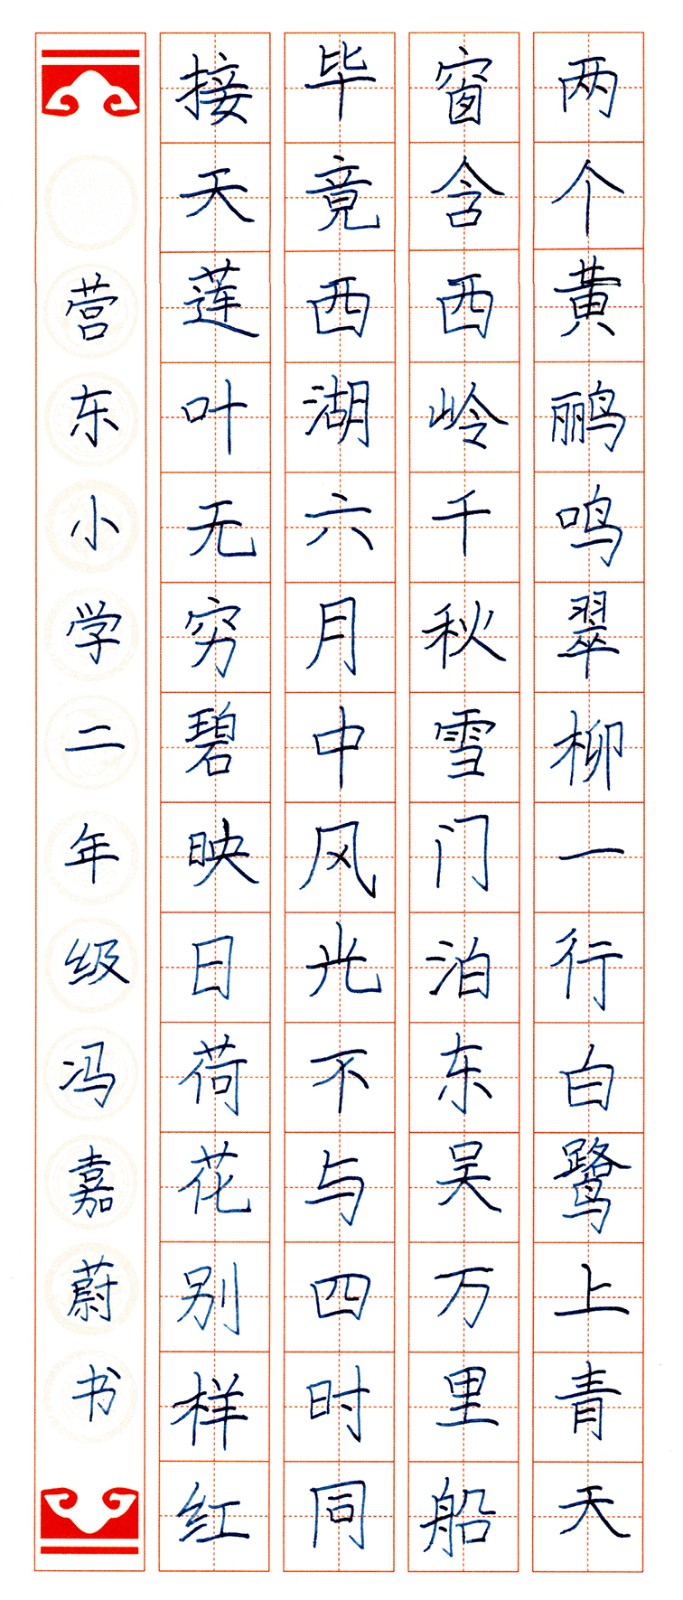 两个黄鹂鸣翠柳一行白鹭上青天
窗含西岭千秋雪门泊东吴万里船
毕竟西湖六月中风光不与四时同
接天莲叶无穷碧映日荷花别样红
营东小学二年级冯嘉蔚书